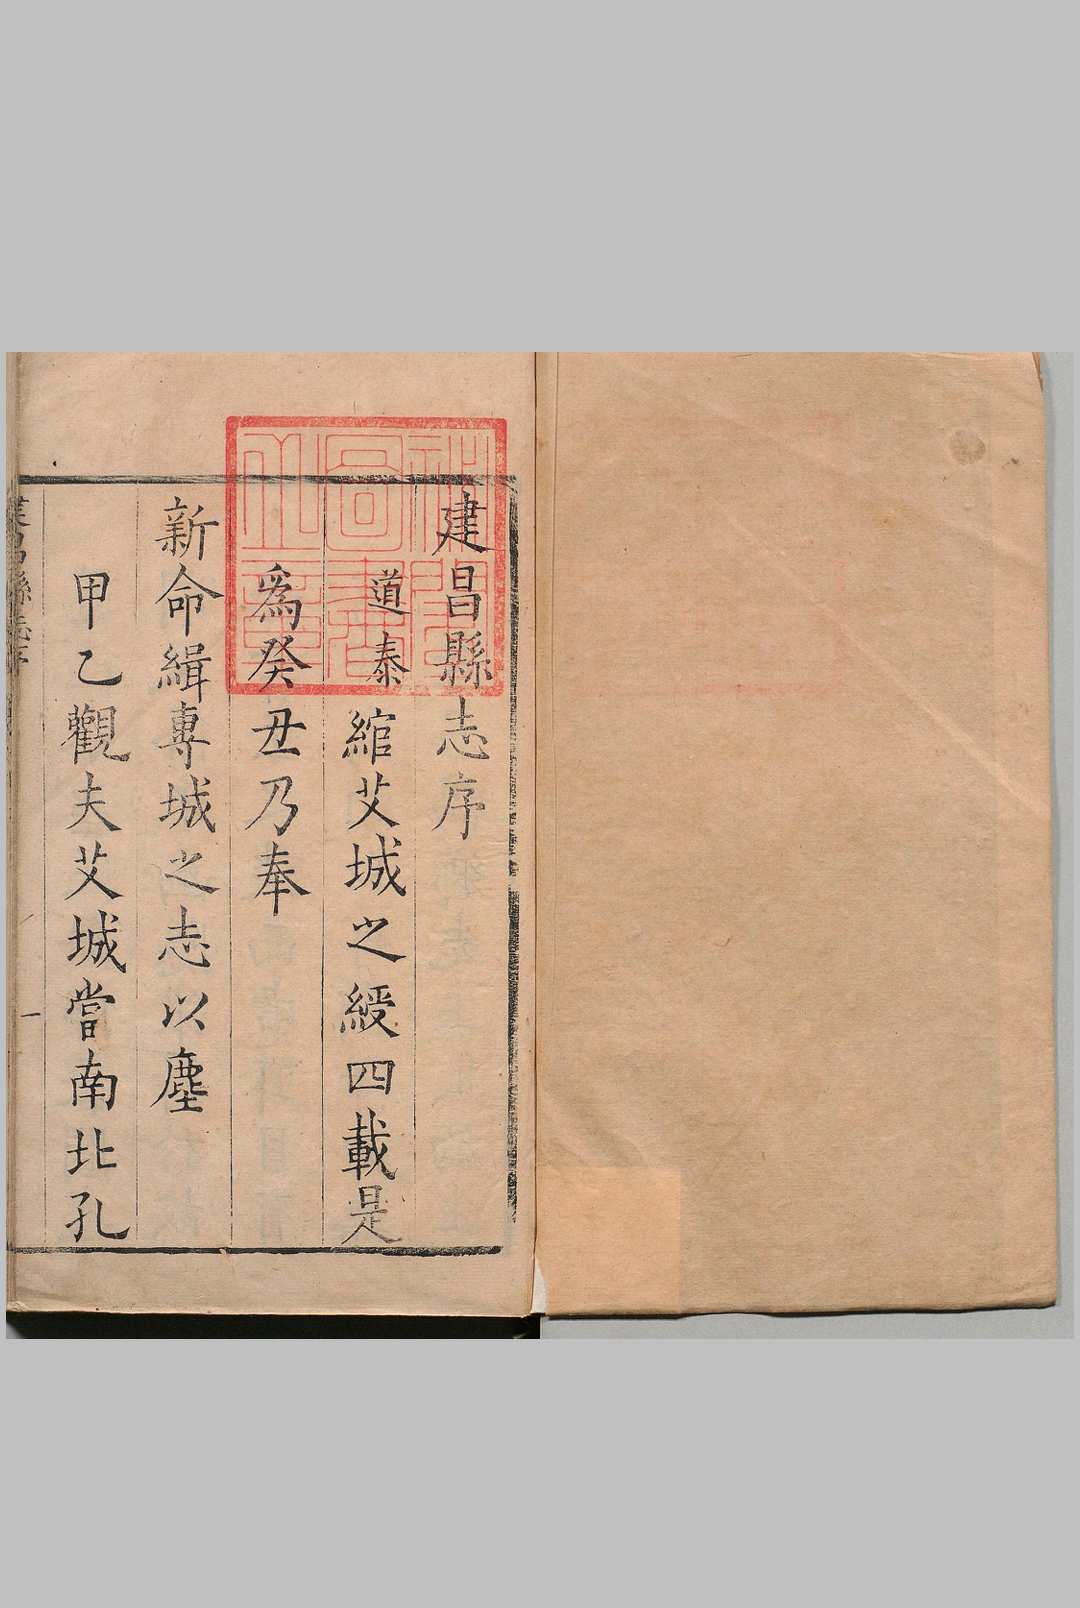 建昌縣志序
道泰綰艾城之綬四載是
爲癸丑乃奉
新命緝專城之志以塵
甲乙觀夫艾城當南北孔
一